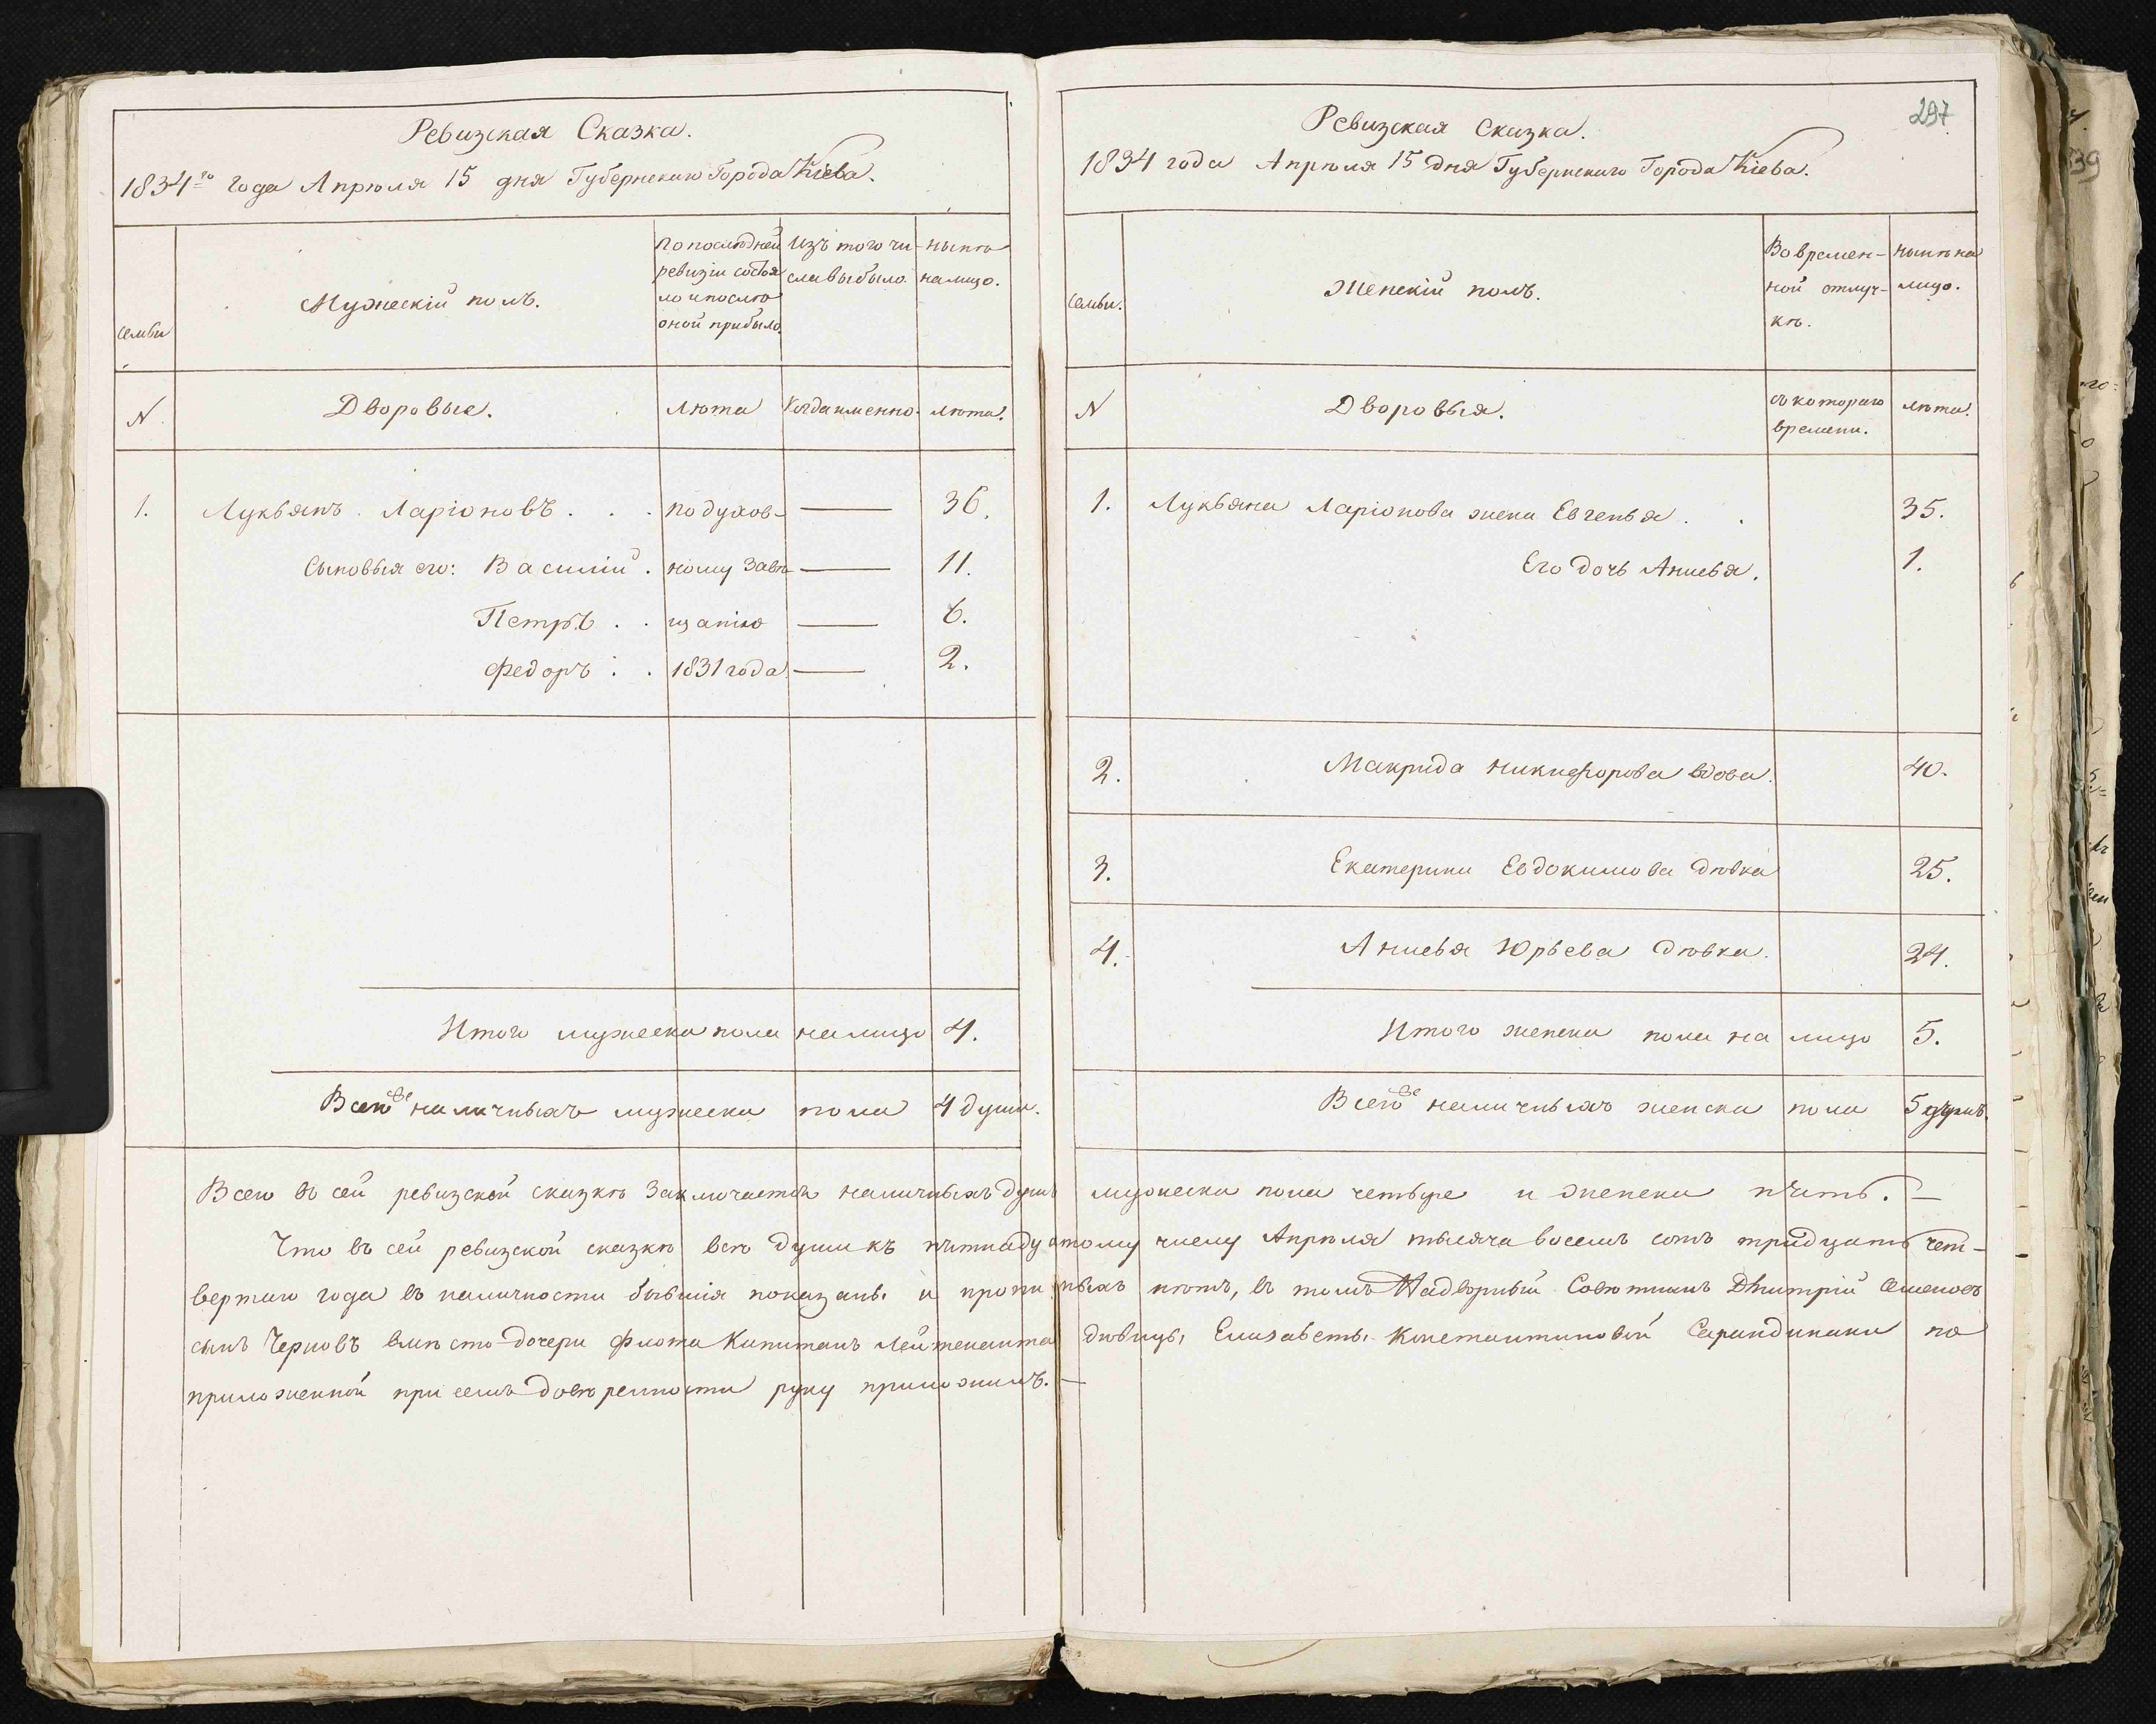 Ревизская Сказка.
1834го года Апрѣля 15 дня Губернскаго Города Кіева.
Семьи
Мужескій полъ.
По последней
ревизіи состоя
ло и послѣ
оной прибыло.
Изъ того чи-
сла выбыло.
Нынѣ
на лицо.
N.
Дворовые.
Лѣта
Когда именно.
Лѣта.
1.
Лукьянъ Ларіоновъ . . . по духов- — 36.
Сыновья его: Василій . ному завѣ — 11.
Петръ . . щанію — 6.
Федоръ . . 1831 года — 2.
Итого мужеска пола на лицо 4.
Всего наличныхъ мужеска пола 4 души.
297
Ревизская Сказка.
1834 года Апрѣля 15 дня Губернскаго Города Кіева.
Семьи.
Женскій полъ.
Во времен-
ной отлуч-
кѣ.
Нынѣ на
лицо.
N
Дворовыя.
съ котораго
времени.
Лѣта.
1. Лукьяна Ларіонова жена Евгенья . . 35.
Его дочь Анисья. 1.
2. Макрида Никифорова вдова. 40.
3. Екатерина Евдокимова дѣвка 25.
4. Анисья Юрьева дѣвка. 24.
Итого женска пола на лицо 5.
Всего наличныхъ женска пола 5 душъ.
Всего въ сей ревизской сказкѣ заключается наличныхъ душъ мужеска пола четыре и женска пять. —
Что въ сей ревизской сказкѣ всѣ души къ пятнадцатому числу Апрѣля тысяча восемь сотъ тридцать чет-
вертаго года въ наличности бывшія показаны и пропи[с]ныхъ нѣтъ, въ томъ Надворный Совѣтникъ Дмитрій Семеновъ
сынъ Черновъ вмѣсто дочери Флота Капитанъ Лейтенанта дѣвицы Елизаветы Константиновой Сарандинаки по
приложенной при семъ довѣренности руку приложилъ. —